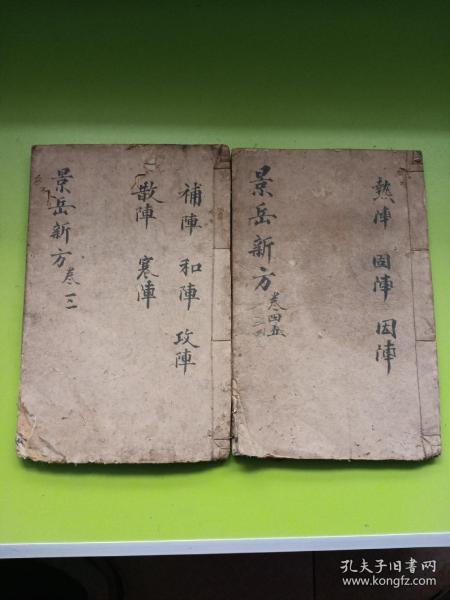 補陣 和陣 攻陣
散陣 寒陣
景岳新方 卷
熱陣 固陣 因陣
景岳新方 卷四五
孔夫子旧书网
www.kongfz.com